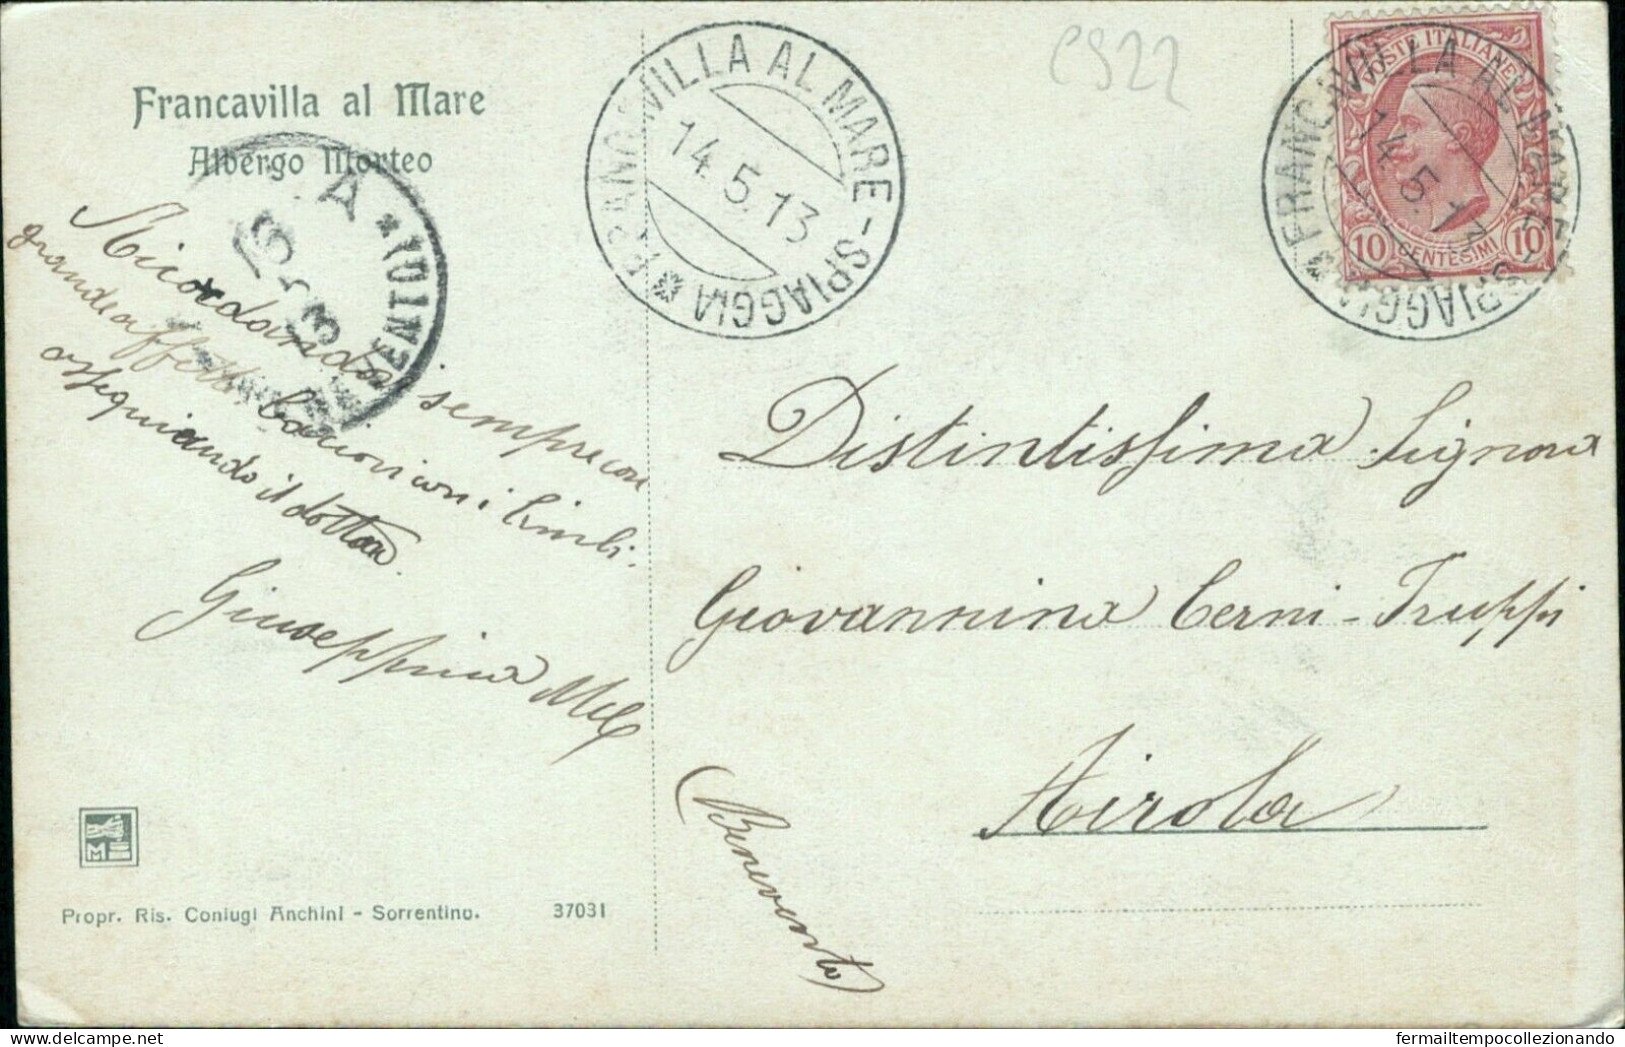 Francavilla al Mare
Albergo Morteo
FRANCAVILLA AL MARE - SPIAGGIA
14.5.13
c922
POSTE ITALIANE
10 CENTESIMI 10
FRANCAVILLA AL MARE - SPIAGGIA
14.5.13
Ricordando sempre con
grande affetto bacioni con i bimbi.
assequiando il dottor.
Giuseppina
Distintissima Signora
Giovannina Cerni-Truppi
Airola
(Benevento)
M
Propr. Ris. Coniugi Anchini - Sorrentino.
37031
fermailtempocollezionando